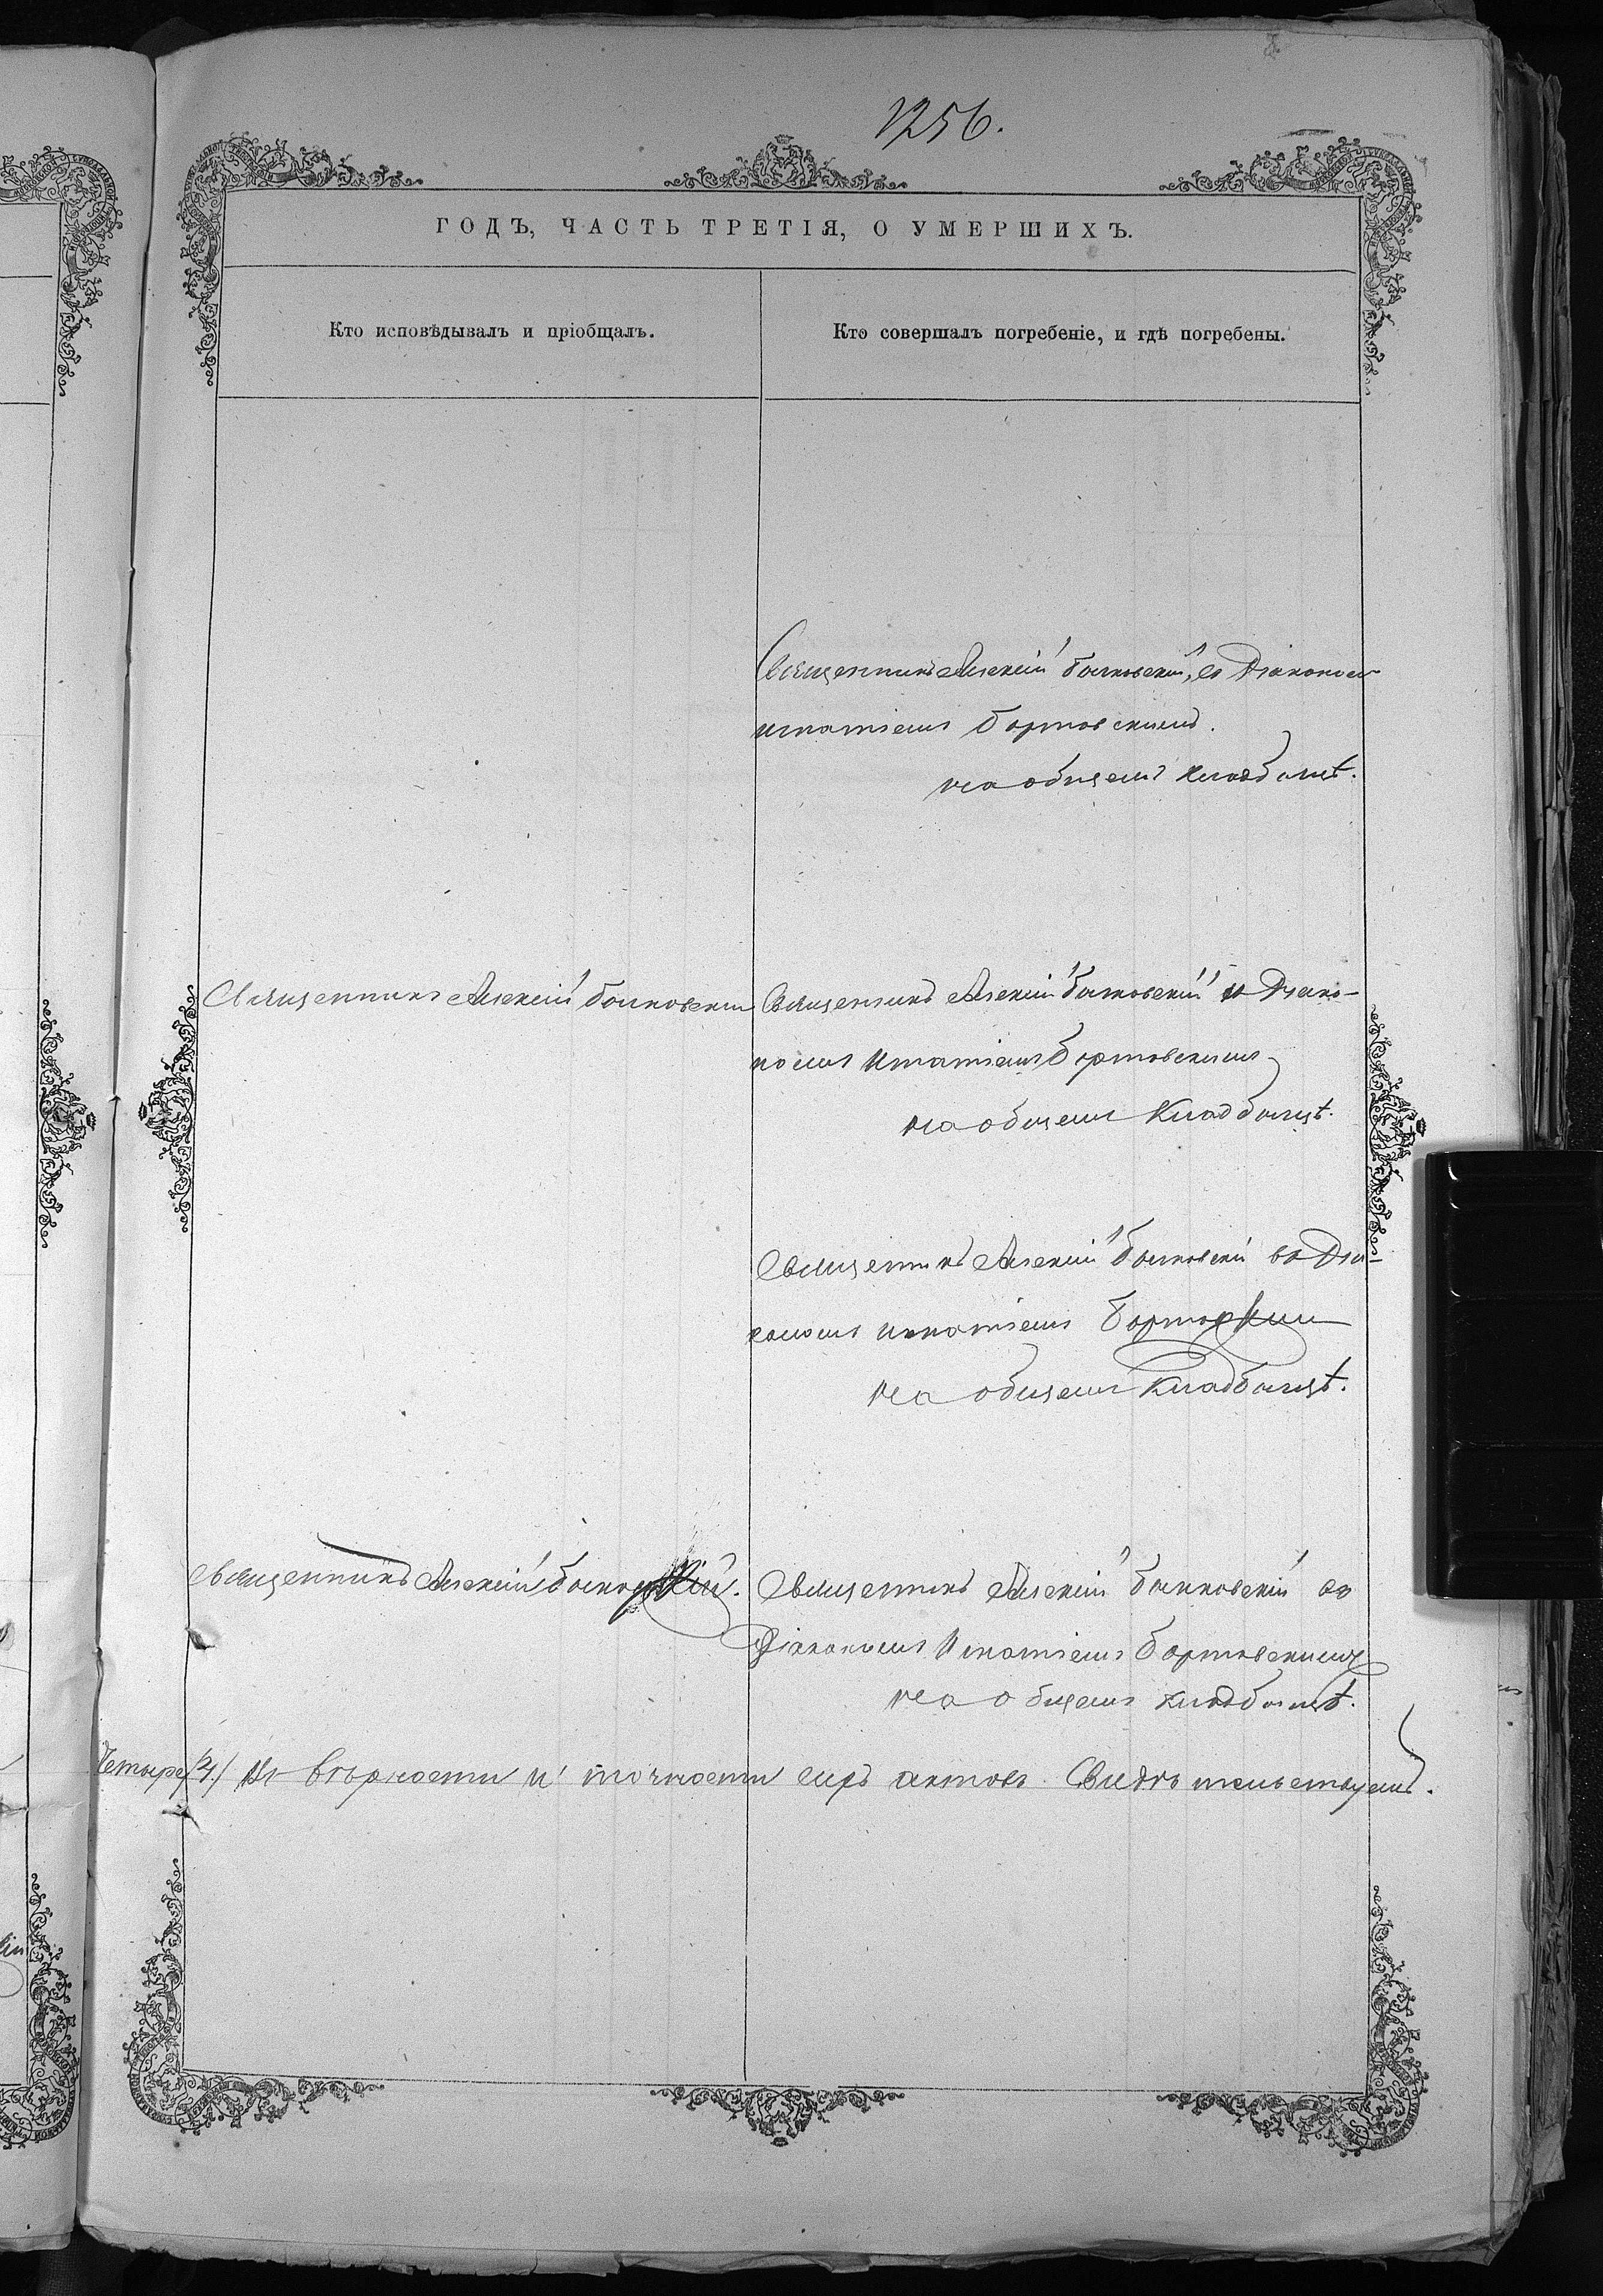 1256.
ГОДЪ, ЧАСТЬ ТРЕТІЯ, О УМЕРШИХЪ.
Кто исповѣдывалъ и пріобщалъ.
Кто совершалъ погребеніе, и гдѣ погребены.
Священникъ Алексій Бычковскій, съ Діакономъ
Игнатіемъ Бортовскимъ.
на общемъ кладбищѣ.
Священникъ Алексій Бычковскій
Священникъ Алексій Бычковскій и Діако-
номъ Игнатіемъ Бортовскимъ
на общемъ Кладбищѣ.
Священникъ Алексій Бычковскій съ Діа-
кономъ Игнатіемъ Бортовским
на общемъ Кладбищѣ.
Священникъ Алексій Бычковскій.
Священникъ Алексій Бычковскій съ
Діакономъ Игнатіемъ Бортовскимъ
на общемъ кладбищѣ.
Четыре /4./ Въ вѣрности и точности сихъ актовъ Свидѣтельствуемъ.